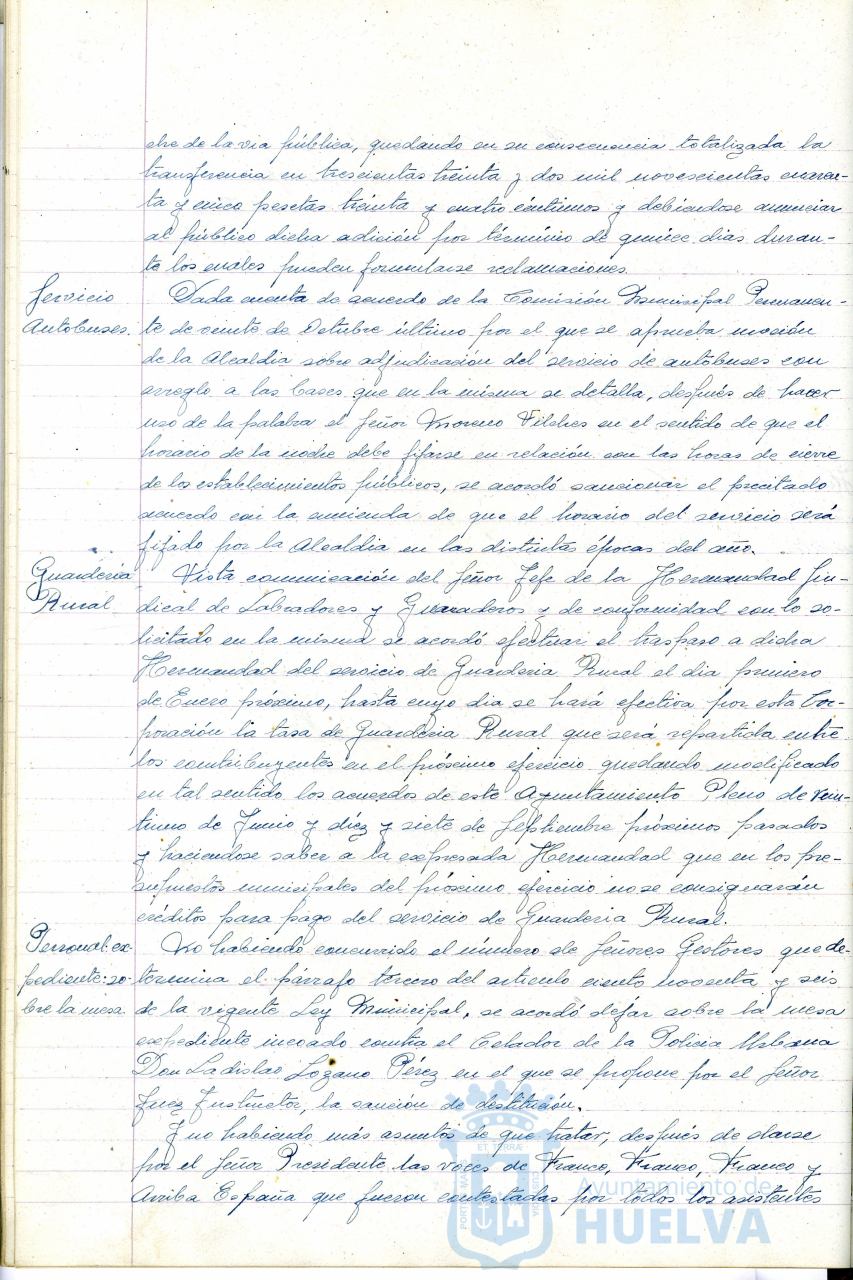 che de la via pública, quedando en su consecuencia totalizada la
transferencia en trescientas treinta y dos mil novescientas cuaren-
ta y cinco pesetas treinta y cuatro céntimos y debiendose anunciar
al público dicha adición por término de quince dias duran-
te los cuales pueden formularse reclamaciones.
Servicio
Autobuses.
Dada cuenta de acuerdo de la Comisión Municipal Permanen-
te de veinte de Octubre último por el que se aprueba moción
de la Alcaldia sobre adjudicación del servicio de autobuses con
arreglo a las bases que en la misma se detalla, después de hacer
uso de la palabra el Señor Moreno Vilches en el sentido de que el
horario de la noche debe fijarse en relación con las horas de cierre
de los establecimientos públicos, se acordó sancionar el precitado
acuerdo con la enmienda de que el horario del servicio será
fijado por la Alcaldia en las distintas épocas del año.
Guarderia
Rural
Vista comunicación del Señor Jefe de la Hermandad Sin-
dical de Labradores y Ganaderos y de conformidad con lo so-
licitado en la misma se acordó efectuar el traspaso a dicha
Hermandad del servicio de Guarderia Rural el dia primero
de Enero próximo, hasta cuyo dia se hará efectiva por esta Cor-
poración la tasa de Guarderia Rural que será repartida entre
los contribuyentes en el próximo ejercicio quedando modificado
en tal sentido los acuerdos de este Ayuntamiento Pleno de
de Junio y diez y siete de Septiembre próximos pasados
y haciendose saber a la expresada Hermandad que en los pre-
supuestos municipales del próximo ejercicio no se consignarán
créditos para pago del servicio de Guarderia Rural.
Personal: ex-
pediente: so-
bre la mesa
No habiendo concurrido el número de Señores Gestores que de-
termina el párrafo tercero del articulo ciento noventa y seis
de la vigente Ley Municipal, se acordó dejar sobre la mesa
expediente incoado contra el Celador de la Policia Urbana
Don Ladislao Lozano Pérez en el que se propone por el Señor
Juez Instructor, la sanción de destitución.
Y no habiendo más asuntos de que tratar, después de darse
por el Señor Presidente las voces de Franco, Franco, Franco y
Arriba España que fueron contestadas por todos los asistentes
Ayuntamiento de
HUELVA